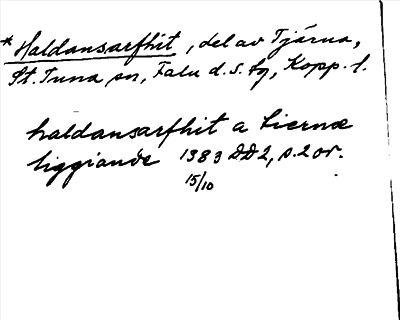 *Haldansarfhit, del av Tjärna,
St. Tuna sn, Falu d.s. tg, Kopp. l.
haldansarfhit a tiernæ
liggiande 1383 DD2, s. 2 or.
15/10